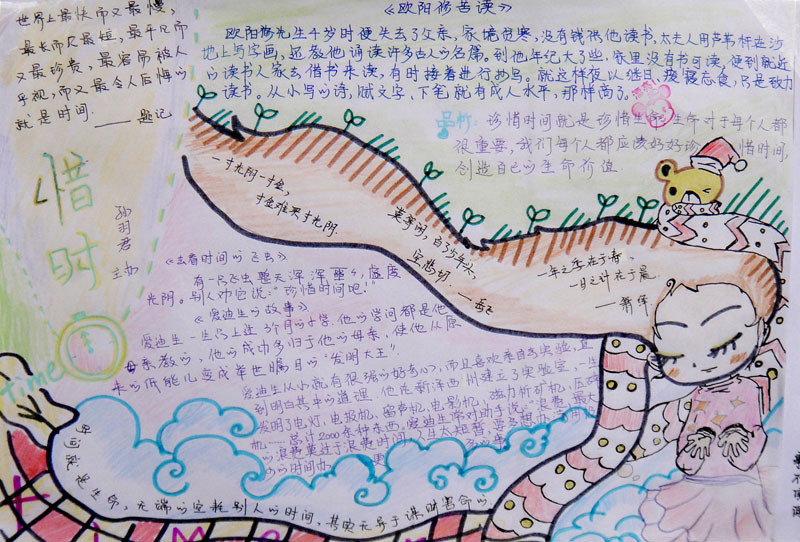 世界上最快而又最慢，
最长而又最短，最平凡而
又最珍贵，最容易被人
忽视，而又最令人后悔的
就是时间。——题记
《欧阳修苦读》
欧阳修先生4岁时便失去了父亲，家境贫寒，没有钱供他读书，太夫人用芦苇杆在沙
地上写字画，还教他诵读许多古人的名篇。到他年纪大了些，家里没有书可读，便到就近
的读书人家去借书来读，有时接着进行抄写。就这样夜以继日，废寝忘食，只是致力
读书。从小写的诗，赋文字，下笔就有成人水平，那样高了。
珍惜时间就是珍惜生命，生命对于每个人都
很重要，我们每个人都应该好好珍惜时间，
创造自己的生命价值
惜时
主办
一寸光阴一寸金，
寸金难买寸光阴。
莫等闲，白了少年头，
空悲切。——岳飞
一年之季在于春，
一日之计在于晨
——萧绎
《去看时间的飞虫》
有一只飞虫整天浑浑噩噩，虚度
光阴。别人劝它说："珍惜时间吧！"
《爱迪生的故事》
爱迪生一生只上过3个月的小学，他的学问都是他
母亲教的，他的成功多归于他的母亲，使他从原
来的低能儿变成举世瞩目的"发明大王"
爱迪生从小就有很强的好奇心，而且喜欢亲自去实验，直
到明白其中的道理。他在新泽西州建立了实验室，一生
发明了电灯、电报机、留声机、电影机、磁力析矿机、压碎
机……总计2000余种东西。爱迪生常对助手说："浪费，最大
的浪费莫过于浪费时间
Time
时间就是生命，无端的空耗别人的时间，其实无异于谋财害命的